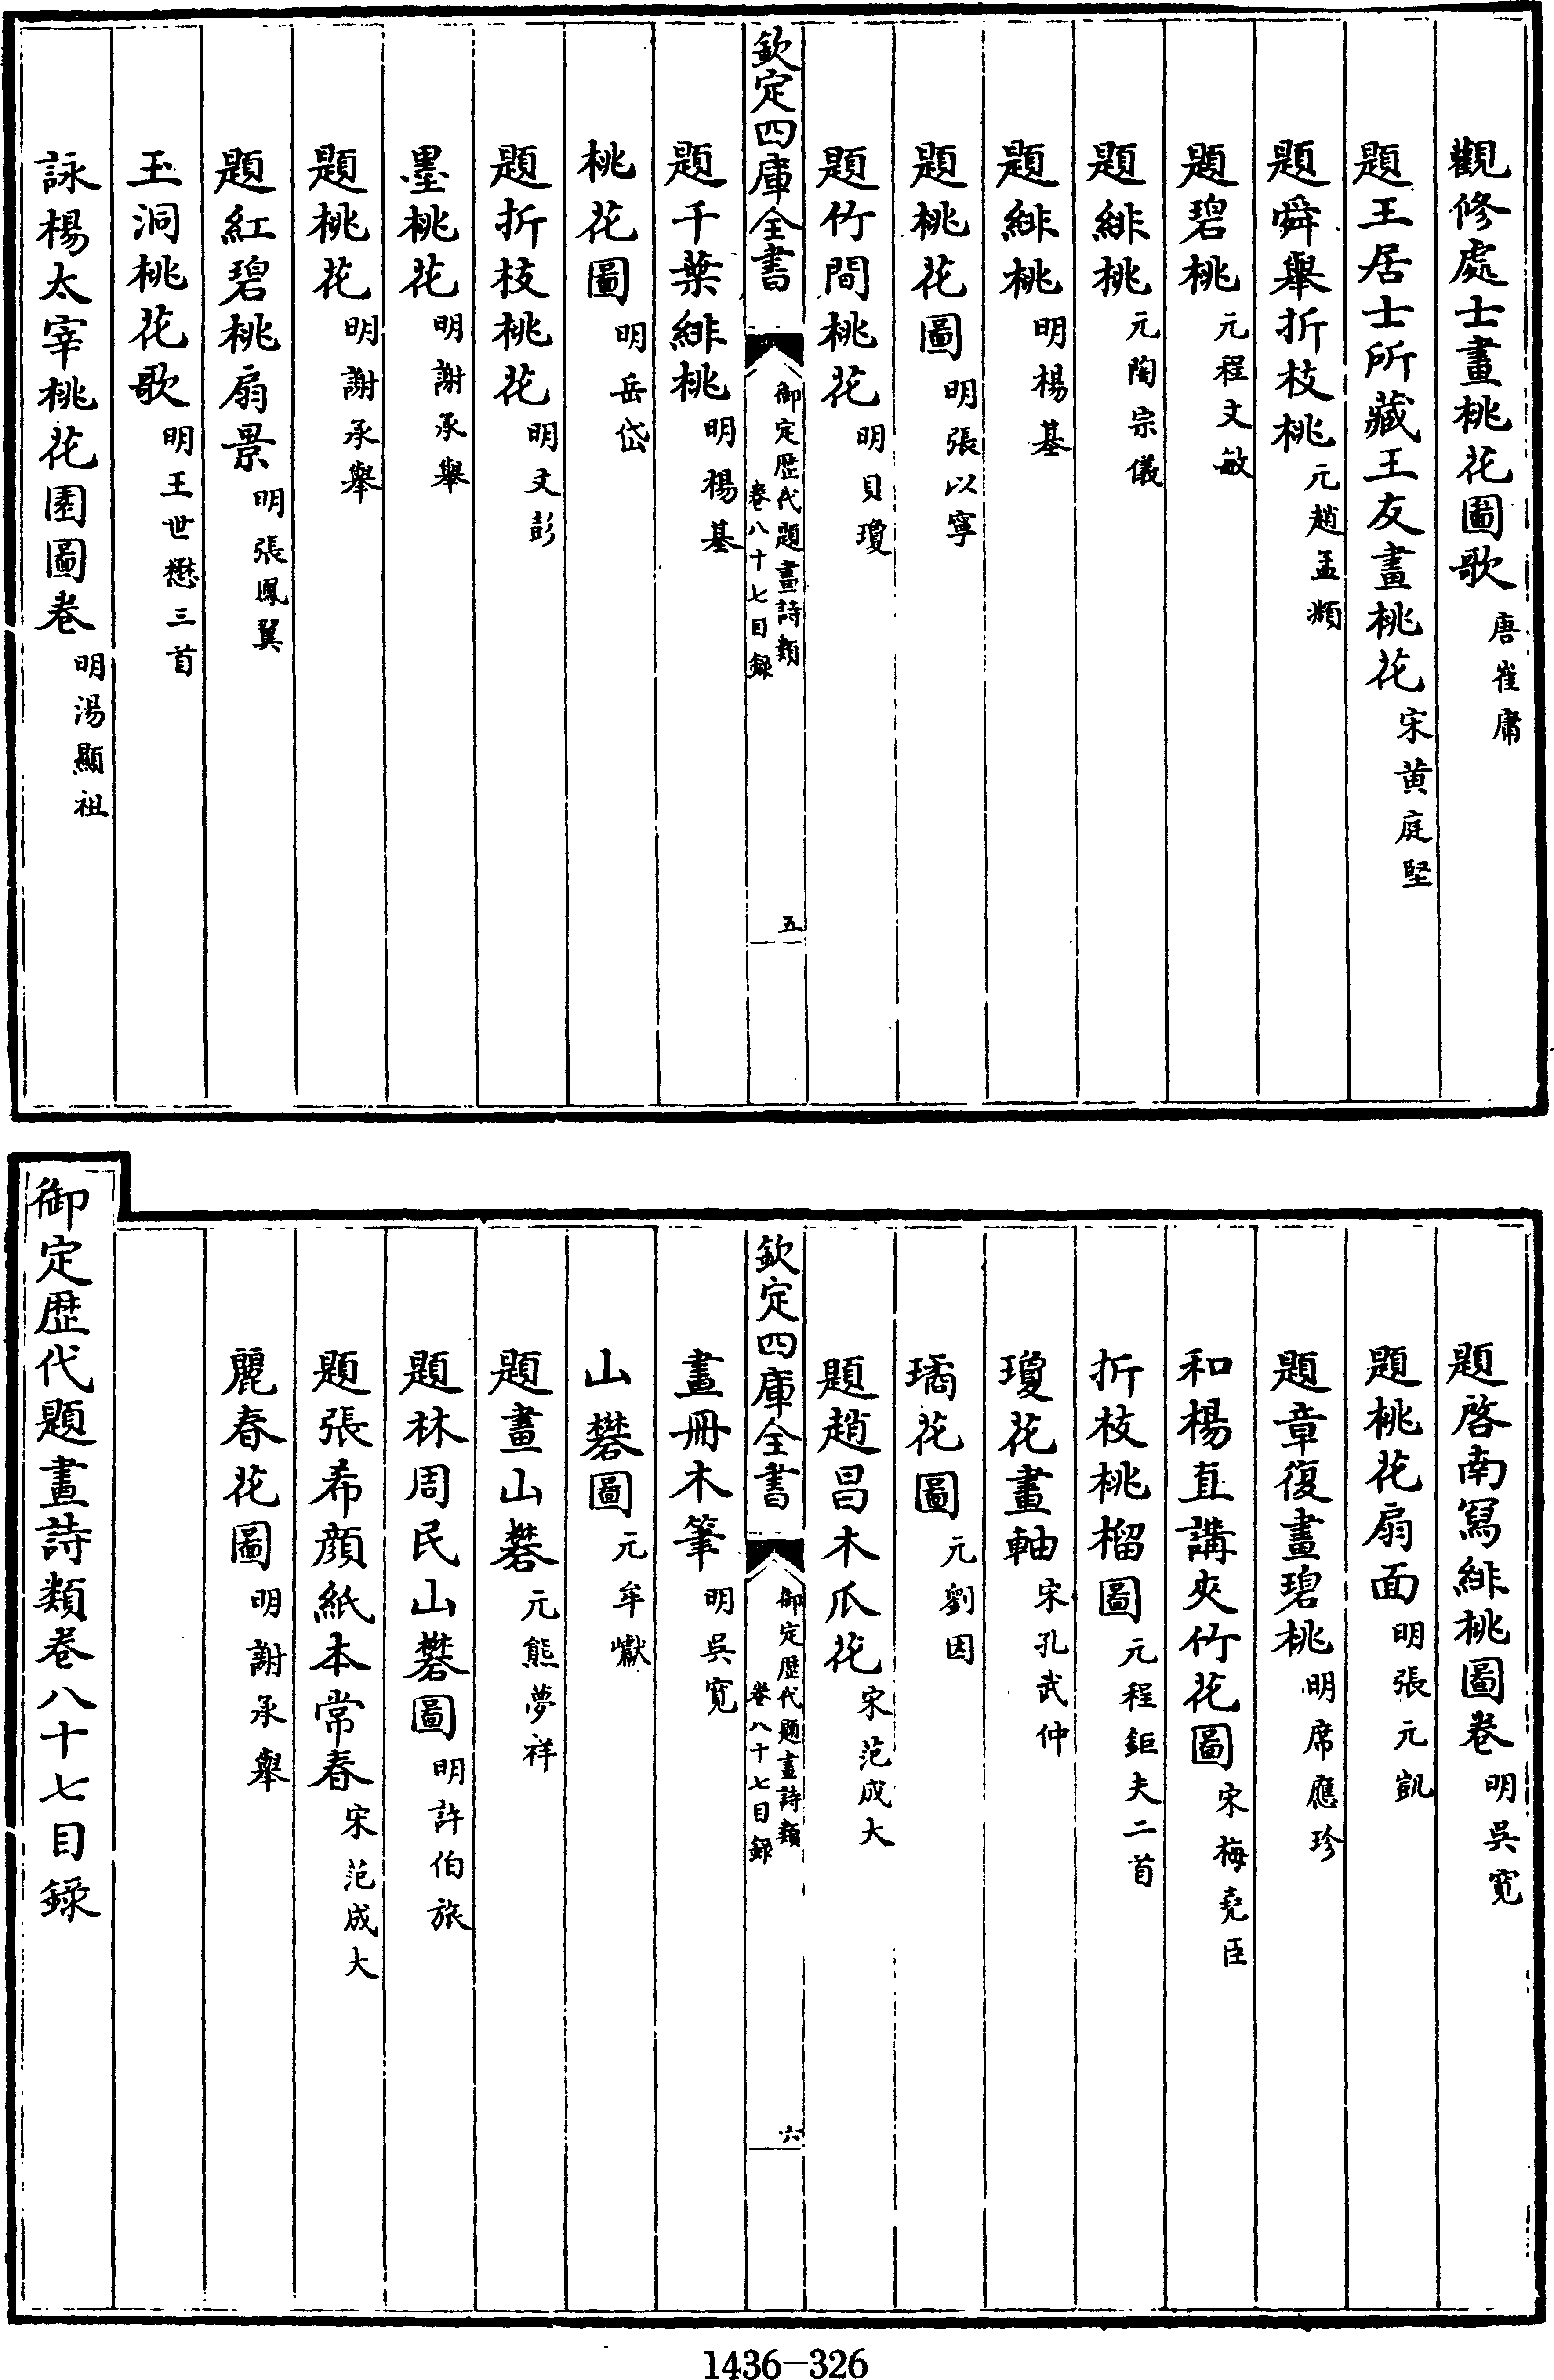 觀修處士畫桃花圖歌 唐崔庸
題王居士所藏王友畫桃花 宋黄庭堅
題舜舉折枝桃 元趙孟頫
題碧桃 元程文敏
題緋桃 元陶宗儀
題緋桃 明楊基
題桃花圖 明張以寧
題竹間桃花 明貝瓊
欽定四庫全書
御定歴代題畫詩類
卷八十七目録
五
題千葉緋桃 明楊基
桃花圖 明岳岱
題折枝桃花 明文彭
墨桃花 明謝承舉
題桃花 明謝承舉
題紅碧桃扇景 明張鳳翼
玉洞桃花歌 明王世懋三首
詠楊太宰桃花園圖卷 明湯顯祖
題啓南寫緋桃圖卷 明吳寛
題桃花扇面 明張元凱
題章復畫碧桃 明席應珍
和楊直講夾竹花圖 宋梅堯臣
折枝桃榴圖 元程鉅夫二首
瓊花畫軸 宋孔武仲
璚花圖 元劉因
題趙昌木瓜花 宋范成大
欽定四庫全書
御定歴代題畫詩類
卷八十七目録
六
畫冊木筆 明吳寛
山礬圖 元牟巘
題畫山礬 元熊夢祥
題林周民山礬圖 明許伯旅
題張希顔紙本常春 宋范成大
麗春花圖 明謝承舉
御定歴代題畫詩類卷八十七目錄
1436-326